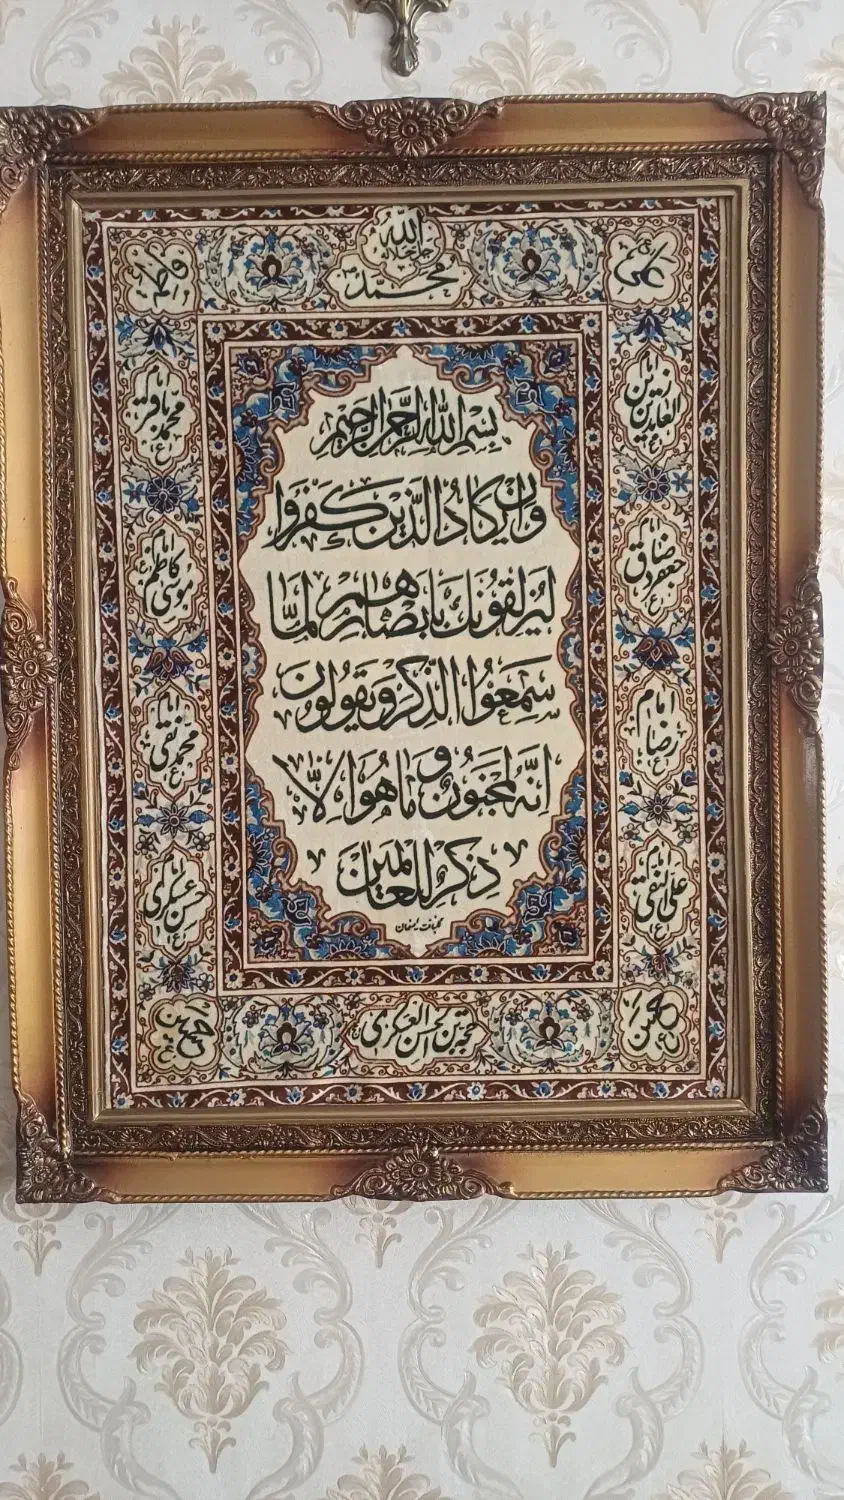 الله
جل جلاله
محمد
علی
فاطمه
امام زین العابدین ع
امام محمد باقر ع
امام جعفر صادق ع
امام موسی کاظم ع
امام رضا ع
امام محمد تقی ع
امام علی النقی ع
امام حسن عسکری ع
حسن
حسین
حجة بن الحسن العسکری
بِسْمِ اللهِ الرَّحْمنِ الرَّحیمِ
وَاِنْ یَکادُ الَّذینَ کَفَرَوُا
لَیُزْلِقُونَکَ بِاَبْصارِهِمْ لَمّا
سَمِعُوا الذِّکْرَ وَیَقُولُونَ
اِنَّهُ لَمَجْنُونٌ وَ ماهُوَ اِلّا
ذِکْرٌ لِلْعالَمینَ